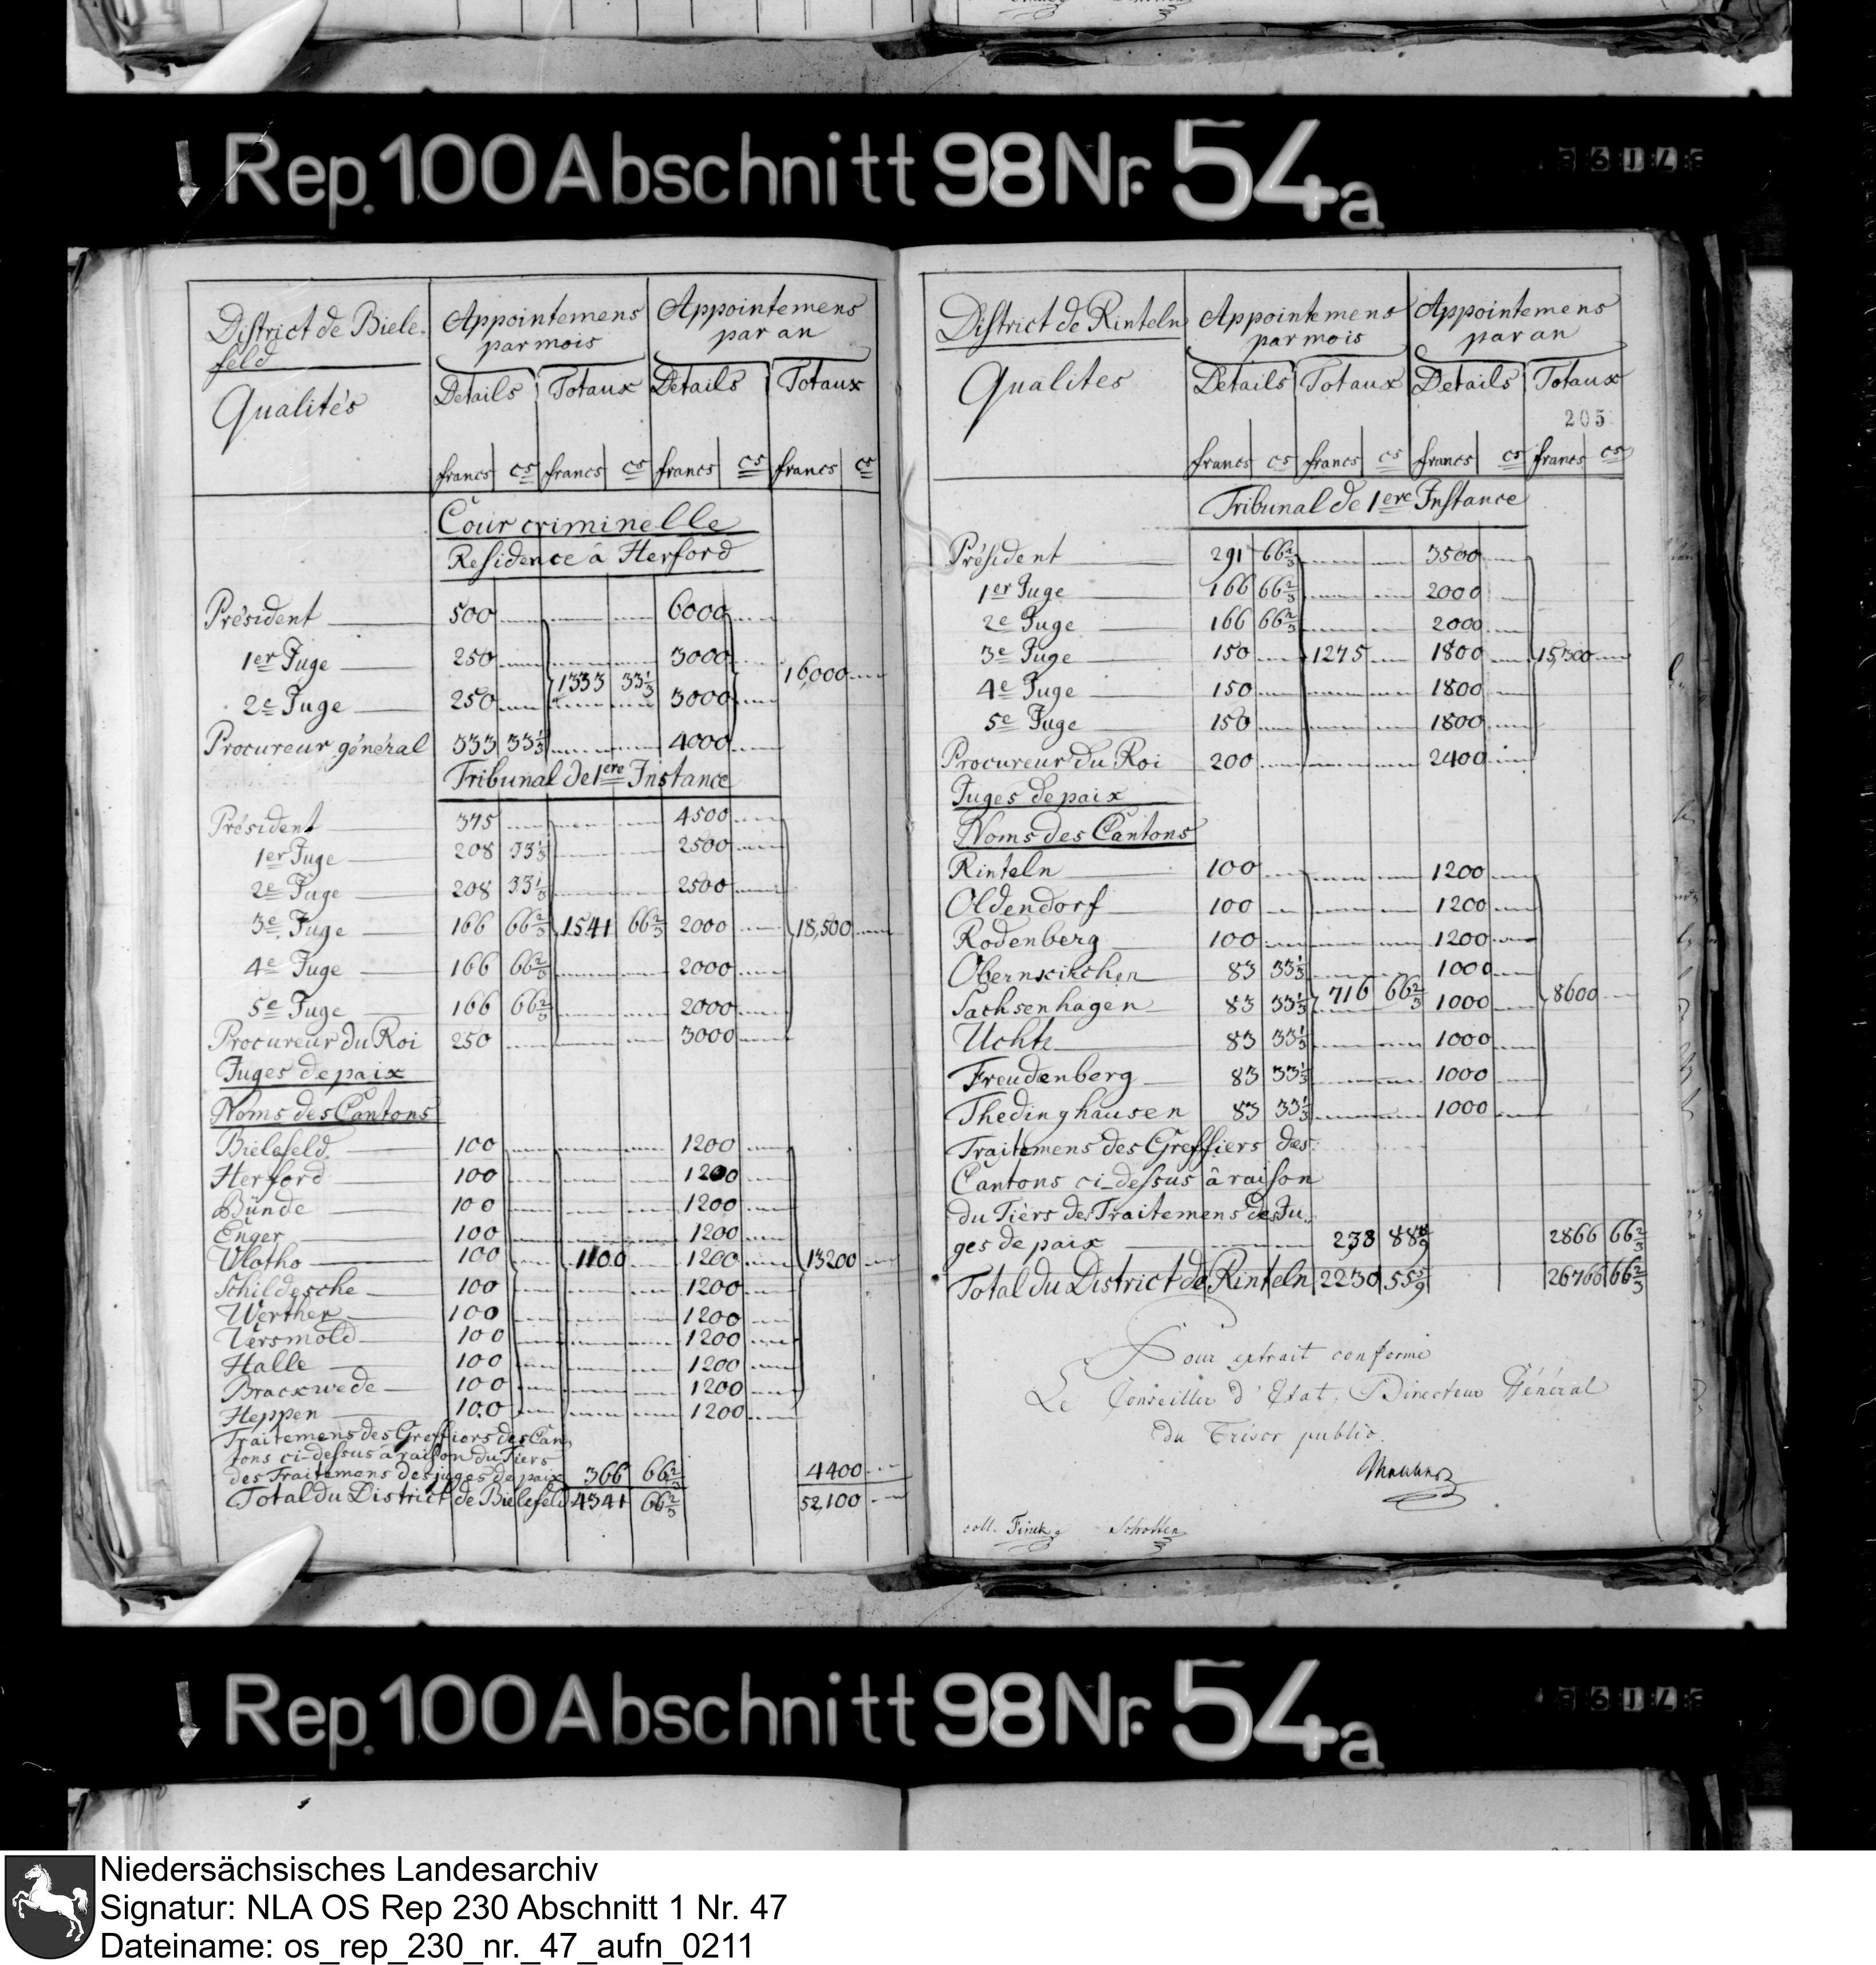 Rep. 100 Abschnitt 98 Nr. 54a
District de Biele-
feld
Qualités
Appointemens
par mois
Appointemens
par an
Details Totaux Details Totaux
francs cs francs cs francs cs francs cs
Cour criminelle
Residence à Herford
Président 500 6000
1er Juge 250 3000
1333 33 1/3 16,000
2e Juge 250 3000
Procureur général 333 33 1/3 4000
Tribunal de 1ere Instance
Président 375 4500
1er Juge 208 33 1/3 2500
2e Juge 208 33 1/3 2500
3e Juge 166 66 2/3 1541 66 2/3 2000 18,500
4e Juge 166 66 2/3 2000
5e Juge 166 66 2/3 2000
Procureur du Roi 250 3000
Juges de paix
Noms des Cantons
Bielefeld 100 1200
Herford 100 1200
Bünde 100 1200
Enger 100 1200
Vlotho 100 1100 1200 13200
Schildesche 100 1200
Werther 100 1200
Versmold 100 1200
Halle 100 1200
Brackwede 100 1200
Heppen 100 1200
Traitemens des Greffiers des Can
tons ci-dessus à raison du Tiers
des Traitemens des juges de paix 366 66 2/3 4400
Total du District de Bielefeld 4341 66 2/3 52,100
District de Rinteln
Qualites
Appointemens
par mois
Appointemens
par an
Details Totaux Details Totaux
205
francs cs francs cs francs cs francs cs
Tribunal de 1ere Instance
Président 291 66 2/3 3500
1er Juge 166 66 2/3 2000
2e Juge 166 66 2/3 2000
3e Juge 150 1275 1800 15,300
4e Juge 150 1800
5e Juge 150 1800
Procureur du Roi 200 2400
Juges de paix
Noms des Cantons
Rinteln 100 1200
Oldendorf 100 1200
Rodenberg 100 1200
Obernkirchen 83 33 1/3 1000
Sachsenhagen 83 33 1/3 716 66 2/3 1000 8600
Uchte 83 33 1/3 1000
Freudenberg 83 33 1/3 1000
Thedinghausen 83 33 1/3 1000
Traitemens des Greffiers des
Cantons ci-dessus à raison
du Tiers des Traitemens des Ju-
ges de paix 238 88 8/9 2866 66 2/3
Total du District de Rinteln 2230 55 5/9 26766 66 2/3
Pour extrait conforme
Le Conseiller d'Etat, Directeur Général
du Trésor public.
coll. Finck
Rep. 100 Abschnitt 98 Nr. 54a
Niedersächsisches Landesarchiv
Signatur: NLA OS Rep 230 Abschnitt 1 Nr. 47
Dateiname: os_rep_230_nr._47_aufn_0211